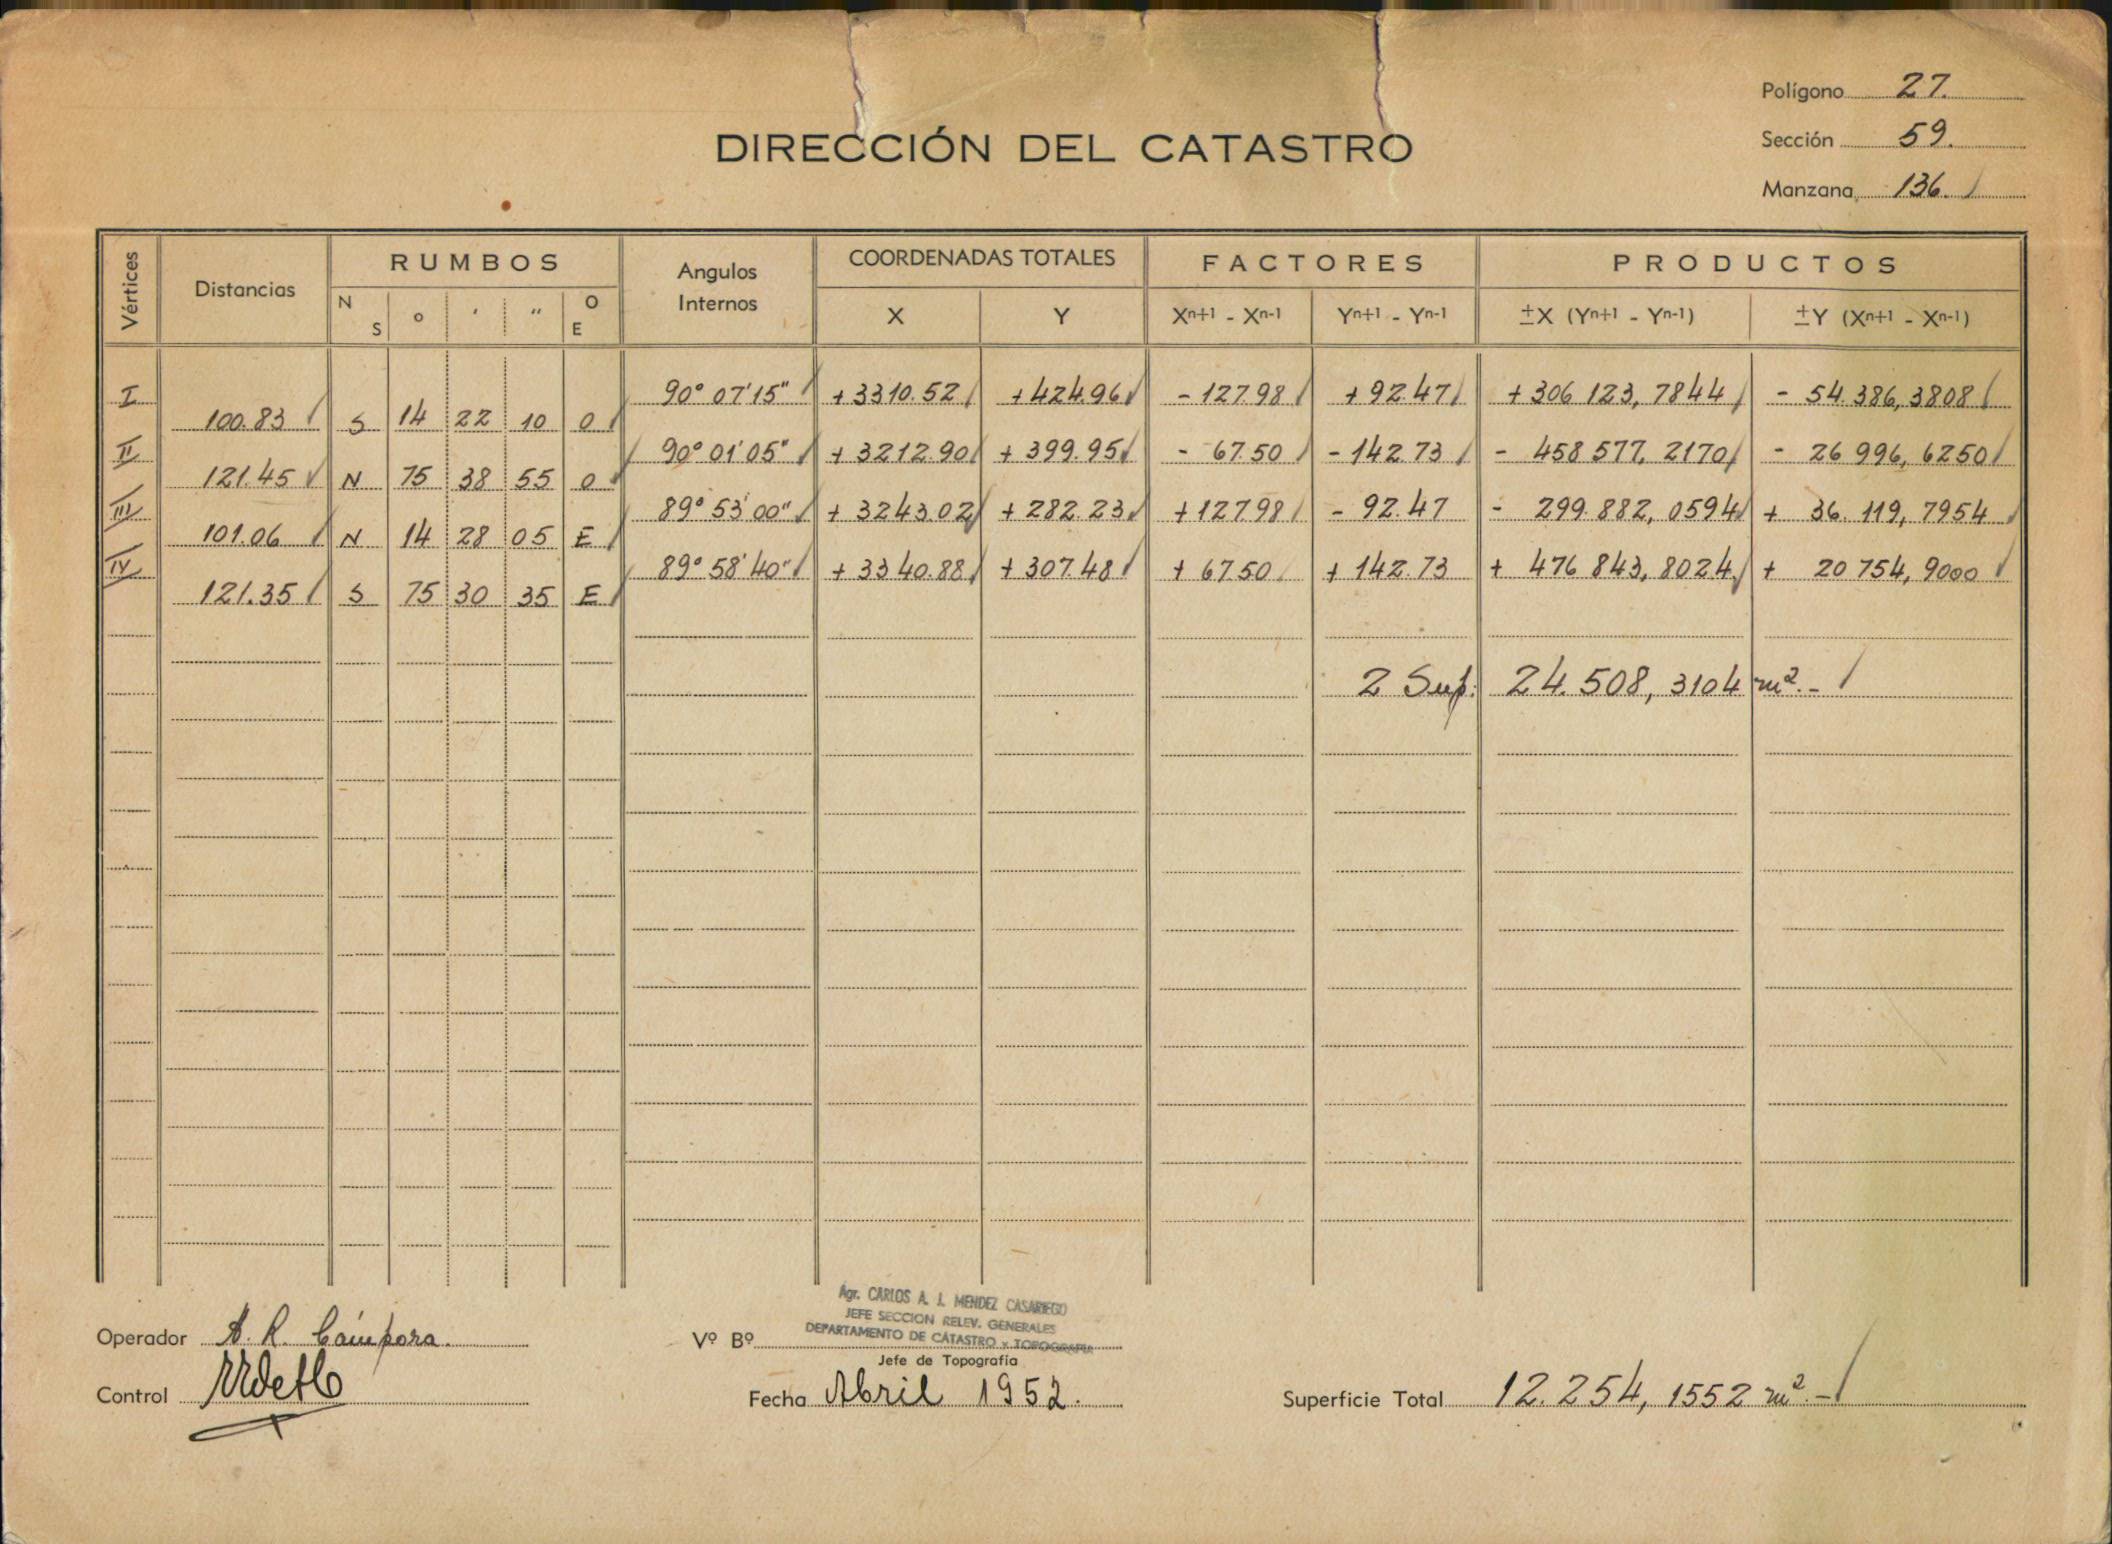 Polígono 27.
Sección 59.
DIRECCIÓN DEL CATASTRO
Manzana 136.
Vértices Distancias RUMBOS Angulos Internos COORDENADAS TOTALES FACTORES PRODUCTOS
N S ° ' " O E X Y Xn+1 - Xn-1 Yn+1 - Yn-1 ±X (Yn+1 - Yn-1) ±Y (Xn+1 - Xn-1)
I 90° 07' 15" +3310.52 +424.96 -127.98 +92.47 +306 123,7844 - 54.386,3808
100.83 S 14 22 10 O
II 90° 01' 05" +3212.90 +399.95 - 67.50 -142.73 - 458 577,2170 - 26 996,6250
121.45 N 75 38 55 O
III 89° 53' 00" +3243.02 +282.23 +127.98 - 92.47 - 299.882,0594 + 36.119,7954
101.06 N 14 28 05 E
IV 89° 58' 40" +3340.88 +307.48 + 67.50 + 142.73 + 476 843,8024 + 20 754,9000
121.35 S 75 30 35 E
2 Sup: 24.508,3104 m².-
Agr. CARLOS A. J. MENDEZ CASARIEGO
JEFE SECCION RELEV. GENERALES
DEPARTAMENTO DE CATASTRO y TOPOGRAFIA
Operador A. R. Cámpora. Vº Bº
Jefe de Topografía
Control Fecha Abril 1952. Superficie Total 12.254,1552 m².-